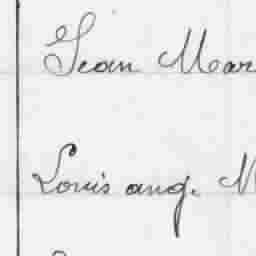 Jean Mar
Louis ang. M